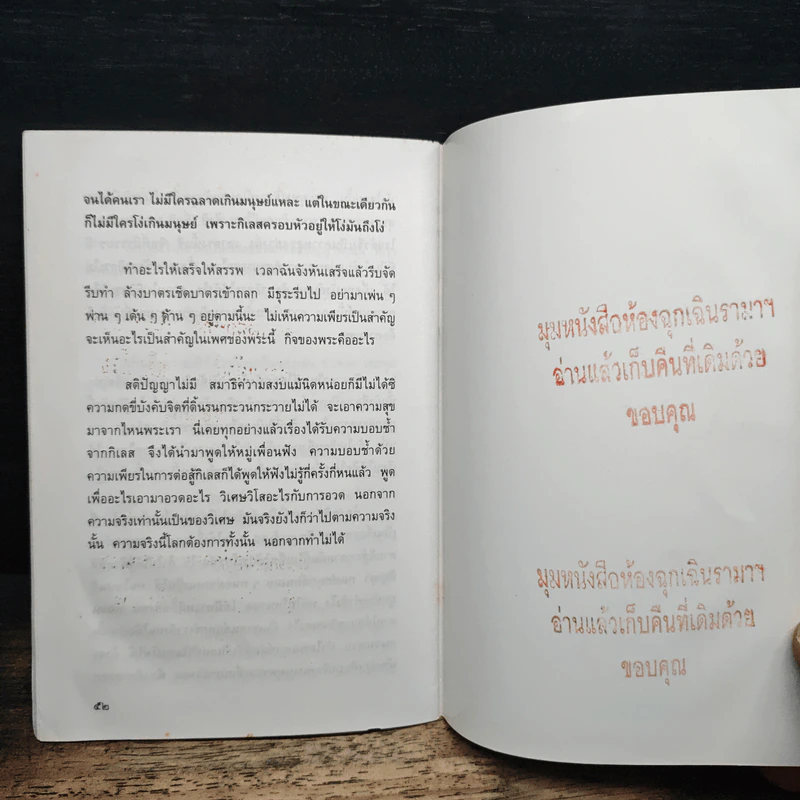 จนได้คนเรา ไม่มีใครฉลาดเกินมนุษย์แหละ แต่ในขณะเดียวกัน
ก็ไม่มีใครโง่เกินมนุษย์ เพราะกิเลสครอบหัวอยู่ให้โง่มันถึงโง่
ทำอะไรให้เสร็จให้สรรพ เวลาฉันจังหันเสร็จแล้วรีบจัด
รีบทำ ล้างบาตรเช็ดบาตรเข้าถลก มีธุระรีบไป อย่ามาเพ่น ๆ
พ่าน ๆ เด้น ๆ ด้าน ๆ อยู่ตามนี้นะ ไม่เห็นความเพียรเป็นสำคัญ
จะเห็นอะไรเป็นสำคัญในเพศของพระนี้ กิจของพระคืออะไร
สติปัญญาไม่มี สมาธิความสงบแม้นิดหน่อยก็มีไม่ได้ซิ
ความกดขี่บังคับจิตที่ดิ้นรนกระวนกระวายไม่ได้ จะเอาความสุข
มาจากไหนพระเรา นี่เคยทุกอย่างแล้วเรื่องได้รับความบอบช้ำ
จากกิเลส จึงได้นำมาพูดให้หมู่เพื่อนฟัง ความบอบช้ำด้วย
ความเพียรในการต่อสู้กิเลสก็ได้พูดให้ฟังไม่รู้กี่ครั้งกี่หนแล้ว พูด
เพื่ออะไรเอามาอวดอะไร วิเศษวิโสอะไรกับการอวด นอกจาก
ความจริงเท่านั้นเป็นของวิเศษ มันจริงยังไงก็ว่าไปตามความจริง
นั้น ความจริงนี้โลกต้องการทั้งนั้น นอกจากทำไม่ได้
๕๒
มุมหนังสือห้องฉุกเฉินรามาฯ
อ่านแล้วเก็บคืนที่เดิมด้วย
ขอบคุณ
มุมหนังสือห้องฉุกเฉินรามาฯ
อ่านแล้วเก็บคืนที่เดิมด้วย
ขอบคุณ